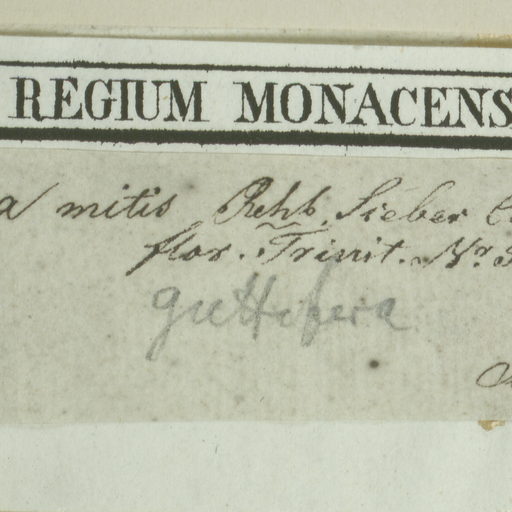 REGIUM MONACENS
a mitis Rchb. Sieber
flor. Trinit. Nr.
guttifera